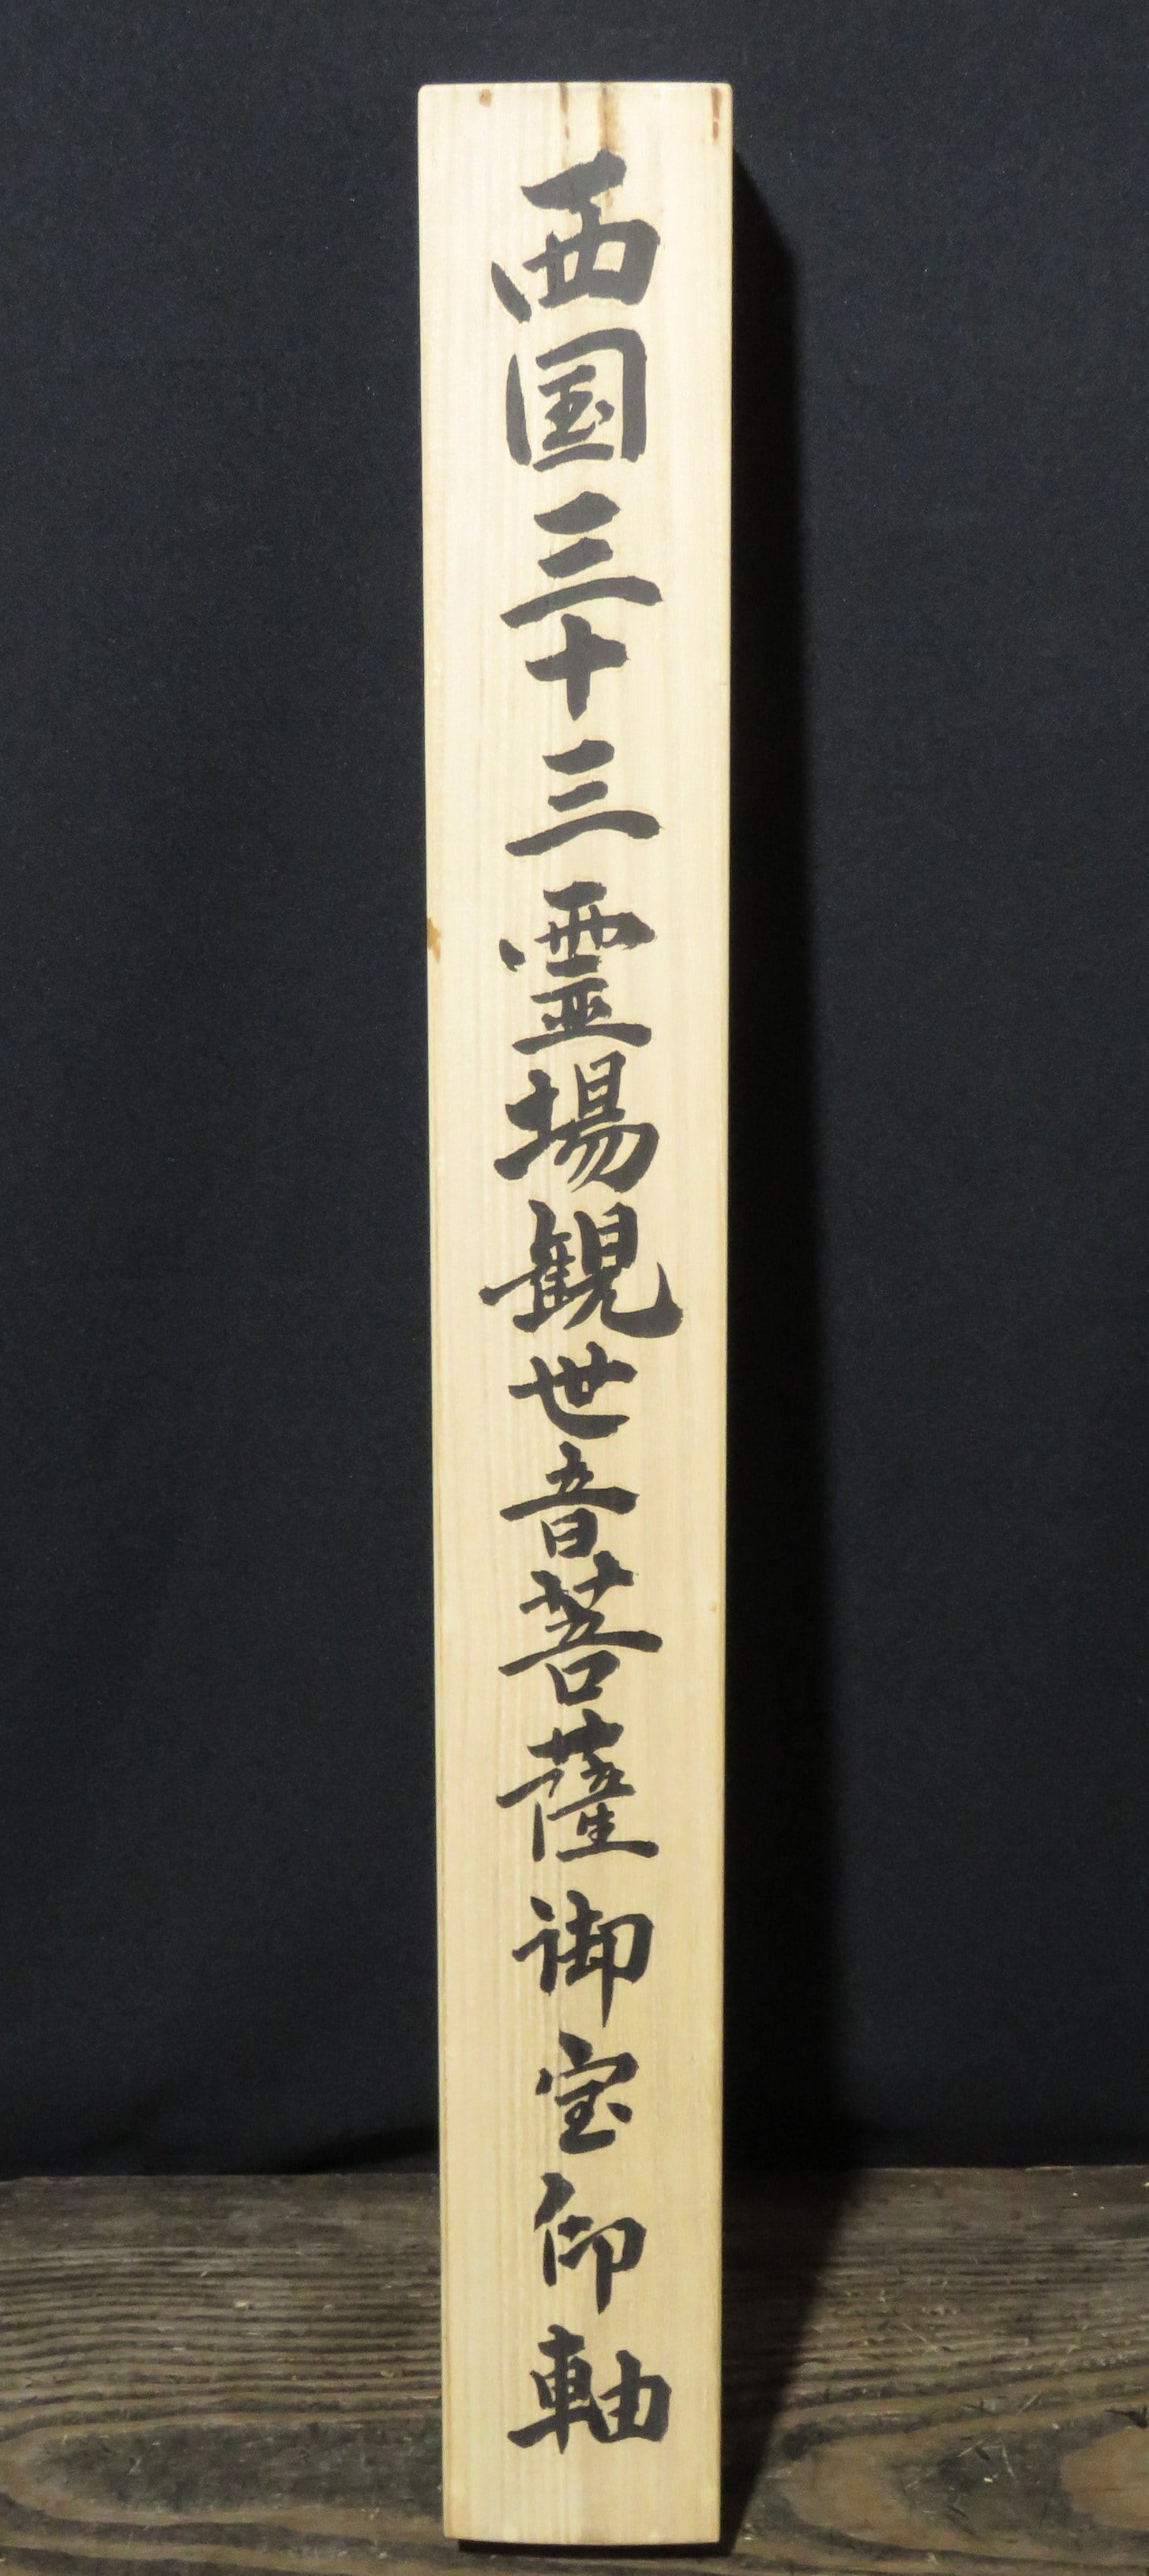 西国三十三霊場観世音菩薩御宝印軸